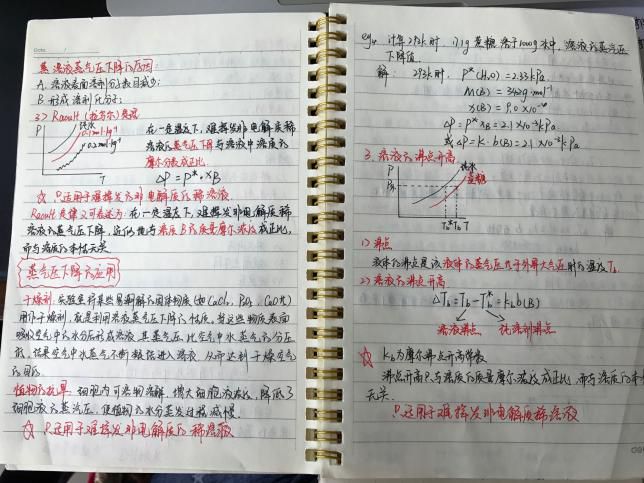 蒸溶液蒸气压下降的原因:
A. 溶液表面溶剂分子数目减少;
B. 形成溶剂化分子;
3) Raoult (拉乌尔) 定律
P
纯水
0.1mol·kg⁻¹
0.2mol·kg⁻¹
T
在一定温度下, 难挥发非电解质稀
溶液的蒸气压下降与溶液中溶质的
摩尔分数成正比.
ΔP = P*·XB
☆ 只适用于难挥发的非电解质的稀溶液
Raoult定律又可表述为: 在一定温度下, 难挥发非电解质稀
溶液的蒸气压下降, 近似地与溶质B的质量摩尔浓度成正比,
而与溶质的本性无关
蒸气压下降的应用
干燥剂. 实验室将某些易潮解的固体物质(如CaCl₂, P₂O₅, CaO等)
用作干燥剂, 就是利用溶液蒸气压下降的性质, 当这些物质表面
吸收空气中的水分后形成溶液, 其蒸气压比空气中水蒸气的分压
低, 结果空气中水蒸气不断凝结进入溶液, 从而达到干燥空气
的目的.
植物的抗旱. 细胞内可溶物溶解, 增大细胞液浓度, 降低了
细胞液的蒸气压, 使植物的水分蒸发过程减慢.
☆ 只适用于难挥发非电解质的稀溶液
eg4 计算293k时, 17.1g蔗糖溶于1000g水中, 溶液的蒸气压
下降值.
解: 293k时, P*(H₂O) = 2.33kPa
M(B) = 342g·mol⁻¹
X(B) = 9.0×10⁻⁴
ΔP = P*XB = 2.1×10⁻³kPa
或 ΔP = k·b(B) = 2.1×10⁻³kPa
3. 溶液的沸点升高
P
纯水
蔗糖
Tb* Tb T
1) 沸点
液体的沸点是该液体的蒸气压等于外界大气压时的温度Tb.
2) 溶液的沸点升高
ΔTb = Tb - Tb* = kb b(B)
溶液沸点 纯溶剂沸点
☆ kb为摩尔沸点升高常数
沸点升高只与溶质的质量摩尔浓度成正比, 而与溶质的本
无关.
只适用于难挥发非电解质稀溶液